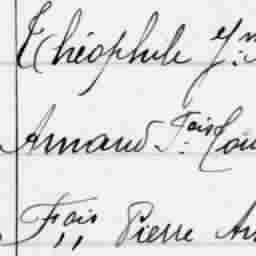 Théophile J.
Arnaud F.ois Lou
F,,ois Pierre An